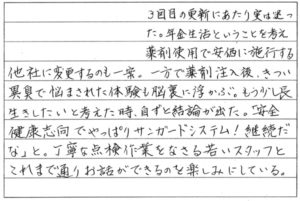 3回目の更新にあたり実は迷っ
た。年金生活ということを考え
薬剤使用で安価に施行する
他社に変更するのも一案。一方で薬剤注入後、きつい
異臭で悩まされた体験も脳裏に浮かぶ。もう少し長
生きしたいと考えた時、自ずと結論が出た。「安全
健康志向でやっぱりサンガードシステム!継続だ
な」と。丁寧な点検作業をなさる若いスタッフと
これまで通りお話ができるのを楽しみにしている。